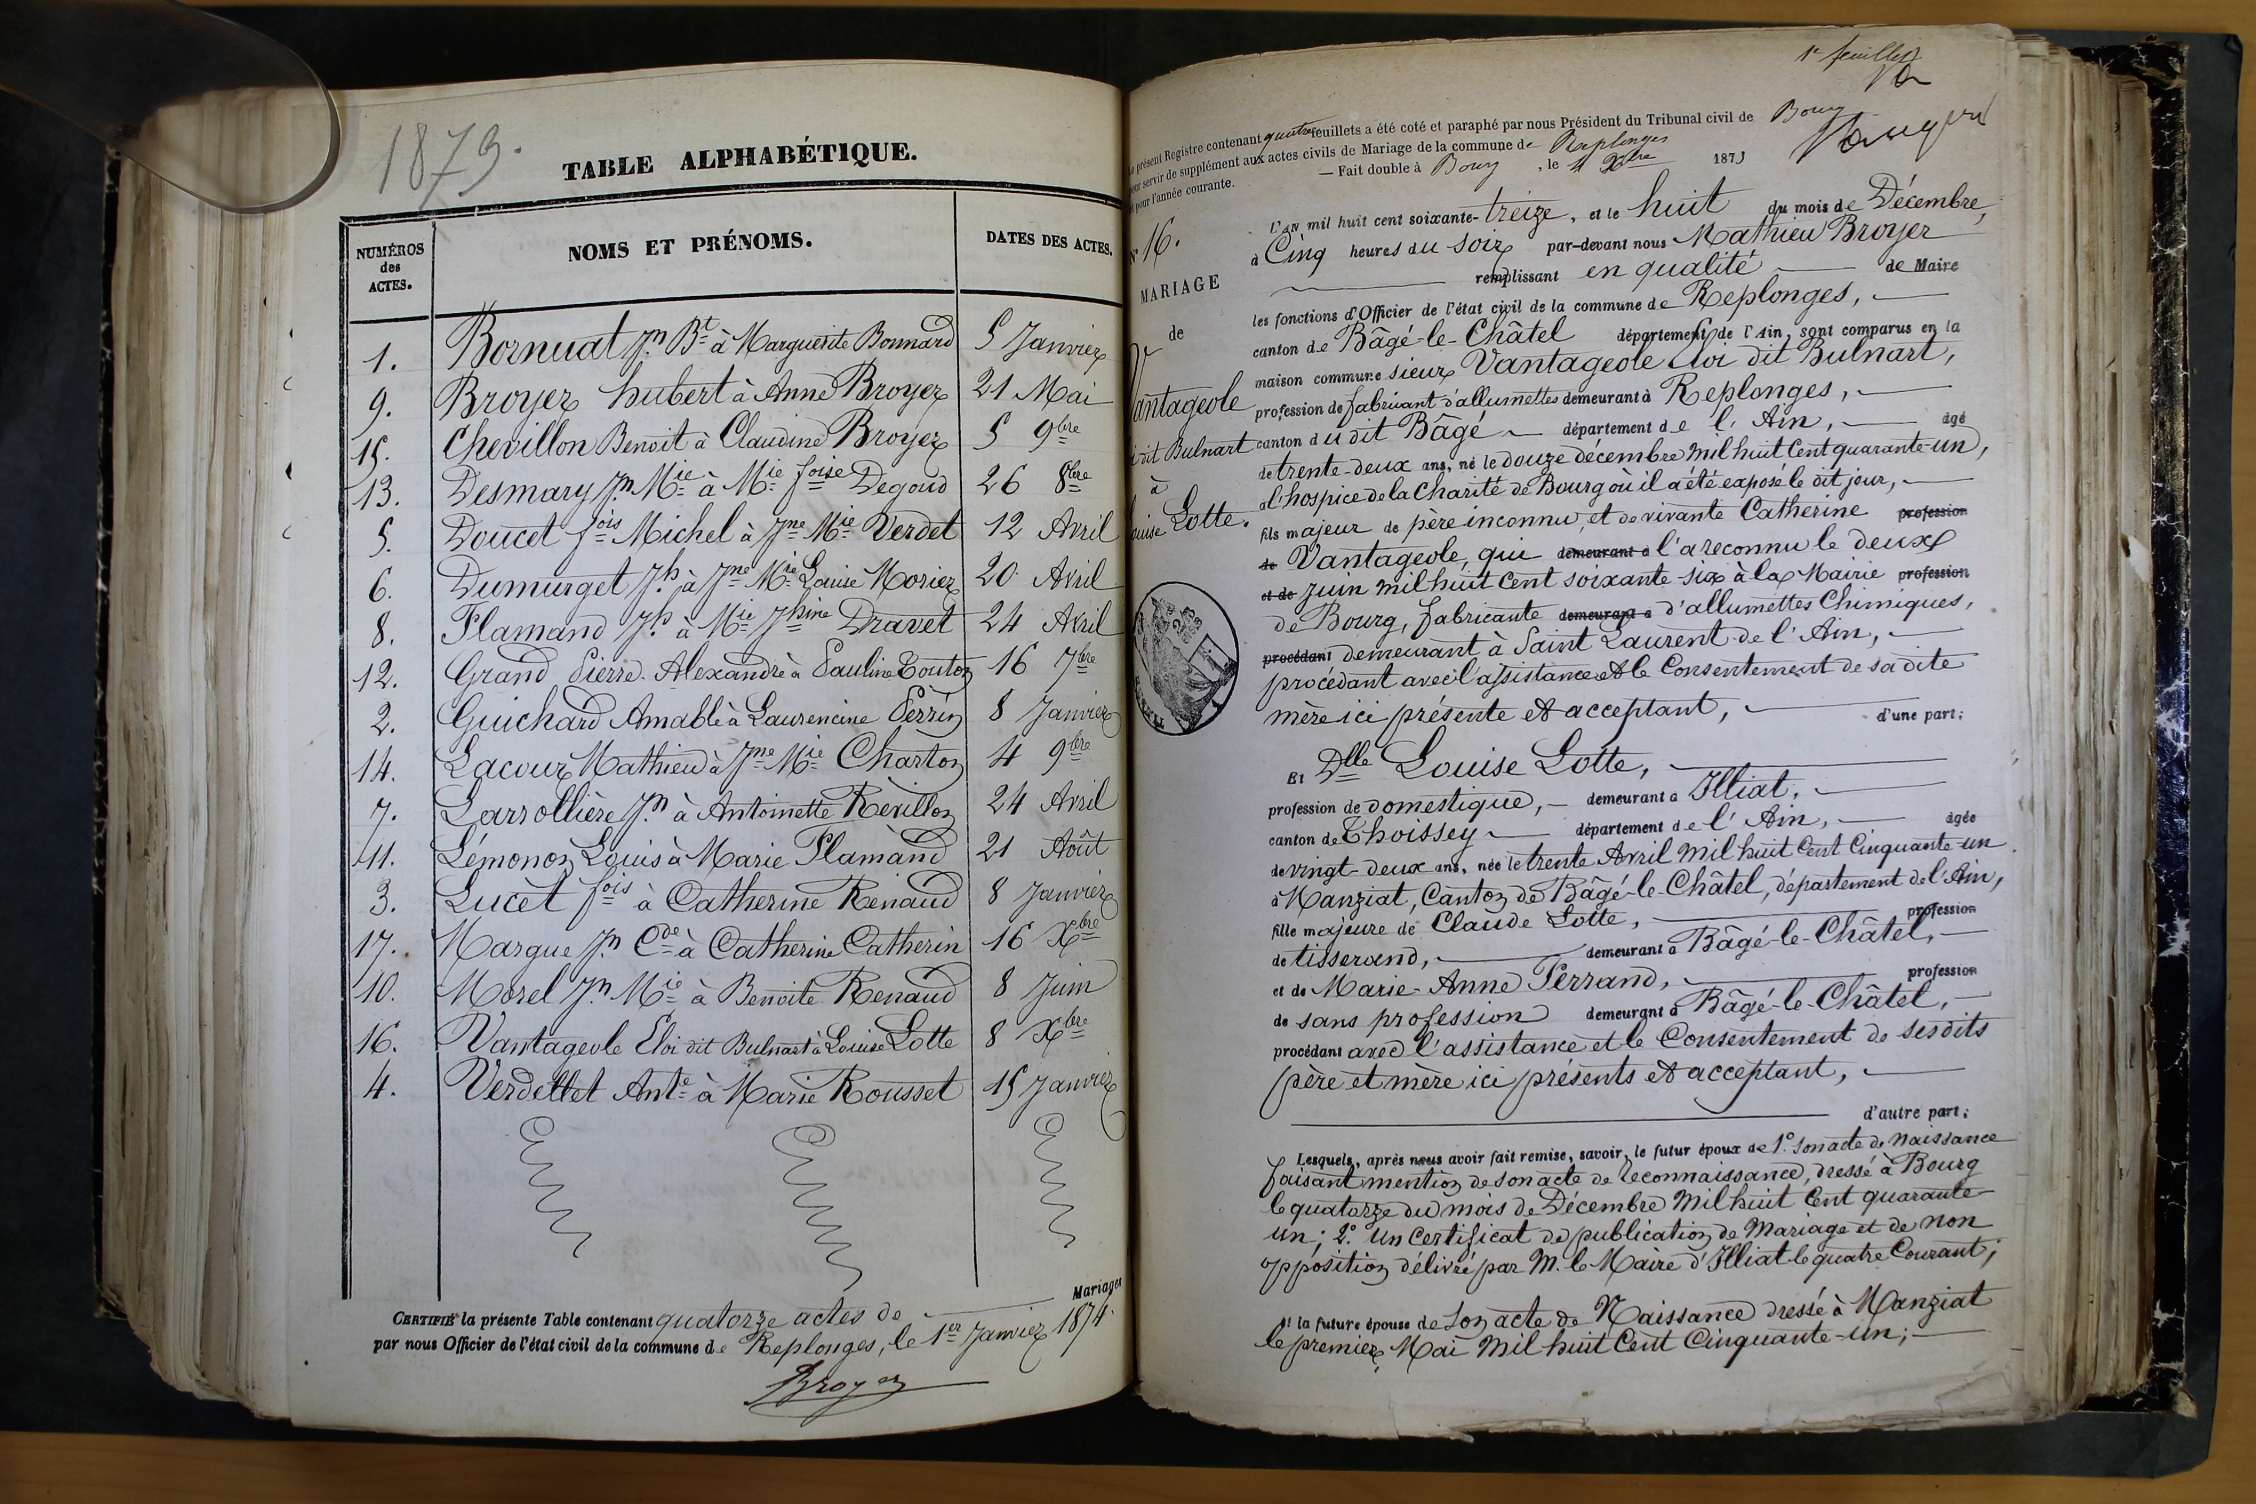 1873.
TABLE ALPHABÉTIQUE.
NUMÉROS des ACTES. NOMS ET PRÉNOMS. DATES DES ACTES.
1. Bornuat Jn Bt à Marguerite Bonnard 5 Janvier
9. Broyer hubert à Anne Broyer 21 Mai
15. Chevillon Benoit à Claudine Broyer 5 9bre
13. Desmary Jn Mie à Mie foise Degoud 26 8bre
5. Doucet fois Michel à Jne Mie Verdet 12 Avril
6. Dumurget Jh à Jne Mie Louise Morier 20 Avril
8. Flamand Jh à Mie Jhine Dravet 24 Avril
12. Grand Pierre Alexandre à Pauline Touton 16 7bre
2. Guichard Amable à Laurencine Perrin 8 Janvier
14. Lacour Mathieu à Jne Mie Charton 4 9bre
7. Larrollière Jn à Antoinette Révillon 24 Avril
11. Lémonon Louis à Marie Flamand 21 Août
3. Lucet fois à Catherine Renaud 8 Janvier
17. Margue Jn Cde à Catherine Catherin 16 Xbre
10. Morel Jn Mie à Benoite Renaud 8 Juin
16. Vantageole Eloi dit Bulnart à Louise Lotte 8 Xbre
4. Verdellet Ante à Marie Rousset 15 Janvier
CERTIFIÉ la présente Table contenant quatorze actes de Mariages
par nous Officier de l'état civil de la commune de Replonges, le 1er Janvier 1874.
Broyer
1e feuillet
présent Registre contenant quatre feuillets a été coté et paraphé par nous Président du Tribunal civil de Bourg
pour servir de supplément aux actes civils de Mariage de la commune de Replonges
pour l'année courante. — Fait double à Bourg, le 1 Xbre 1873
No 16.
MARIAGE
de
Vantageole
dit Bulnart
à
Louise Lotte.
L'an mil huit cent soixante-treize, et le huit du mois de Décembre,
à Cinq heures du soir par-devant nous Mathieu Broyer
remplissant en qualité de Maire
les fonctions d'Officier de l'état civil de la commune de Replonges,
canton de Bâgé-le-Châtel département de l'Ain, sont comparus en la
maison commune sieur Vantageole Eloi dit Bulnart,
profession de fabricant d'allumettes demeurant à Replonges,
canton du dit Bâgé département de l'Ain, âgé
de trente-deux ans, né le douze décembre mil huit Cent quarante-un,
à l'hospice de la Charité de Bourg où il a été exposé le dit jour,
fils majeur de père inconnu, et de vivante Catherine profession
de Vantageole, qui demeurant à l'a reconnu le deux
et de juin mil huit Cent soixante-six à la Mairie profession
de Bourg, fabricante demeurant à d'allumettes Chimiques,
procédant demeurant à Saint Laurent-de l'Ain,
procédant avec l'assistance et le Consentement de sa dite
mère ici présente et acceptant, d'une part;
Et Dlle Louise Lotte,
profession de domestique, demeurant à Illiat,
canton de Thoissey département de l'Ain, âgée
de vingt-deux ans, née le trente Avril mil huit Cent Cinquante-un
à Manziat, Canton de Bâgé-le-Châtel, département de l'Ain,
fille majeure de Claude Lotte, profession
de tisserand, demeurant à Bâgé-le-Châtel,
et de Marie-Anne Ferrand, profession
de sans profession demeurant à Bâgé-le-Châtel,
procédant avec l'assistance et le Consentement de sesdits
père et mère ici présents et acceptant,
d'autre part;
Lesquels, après nous avoir fait remise, savoir, le futur époux de 1o Son acte de Naissance
faisant mention de son acte de reconnaissance, dressé à Bourg
le quatorze du mois de Décembre mil huit Cent quarante-
un; 2o un Certificat de publication de Mariage et de non
opposition délivré par M. le Maire d'Illiat le quatre Courant;
et la future épouse de Son acte de Naissance dressé à Manziat
le premier Mai mil huit Cent Cinquante-un;